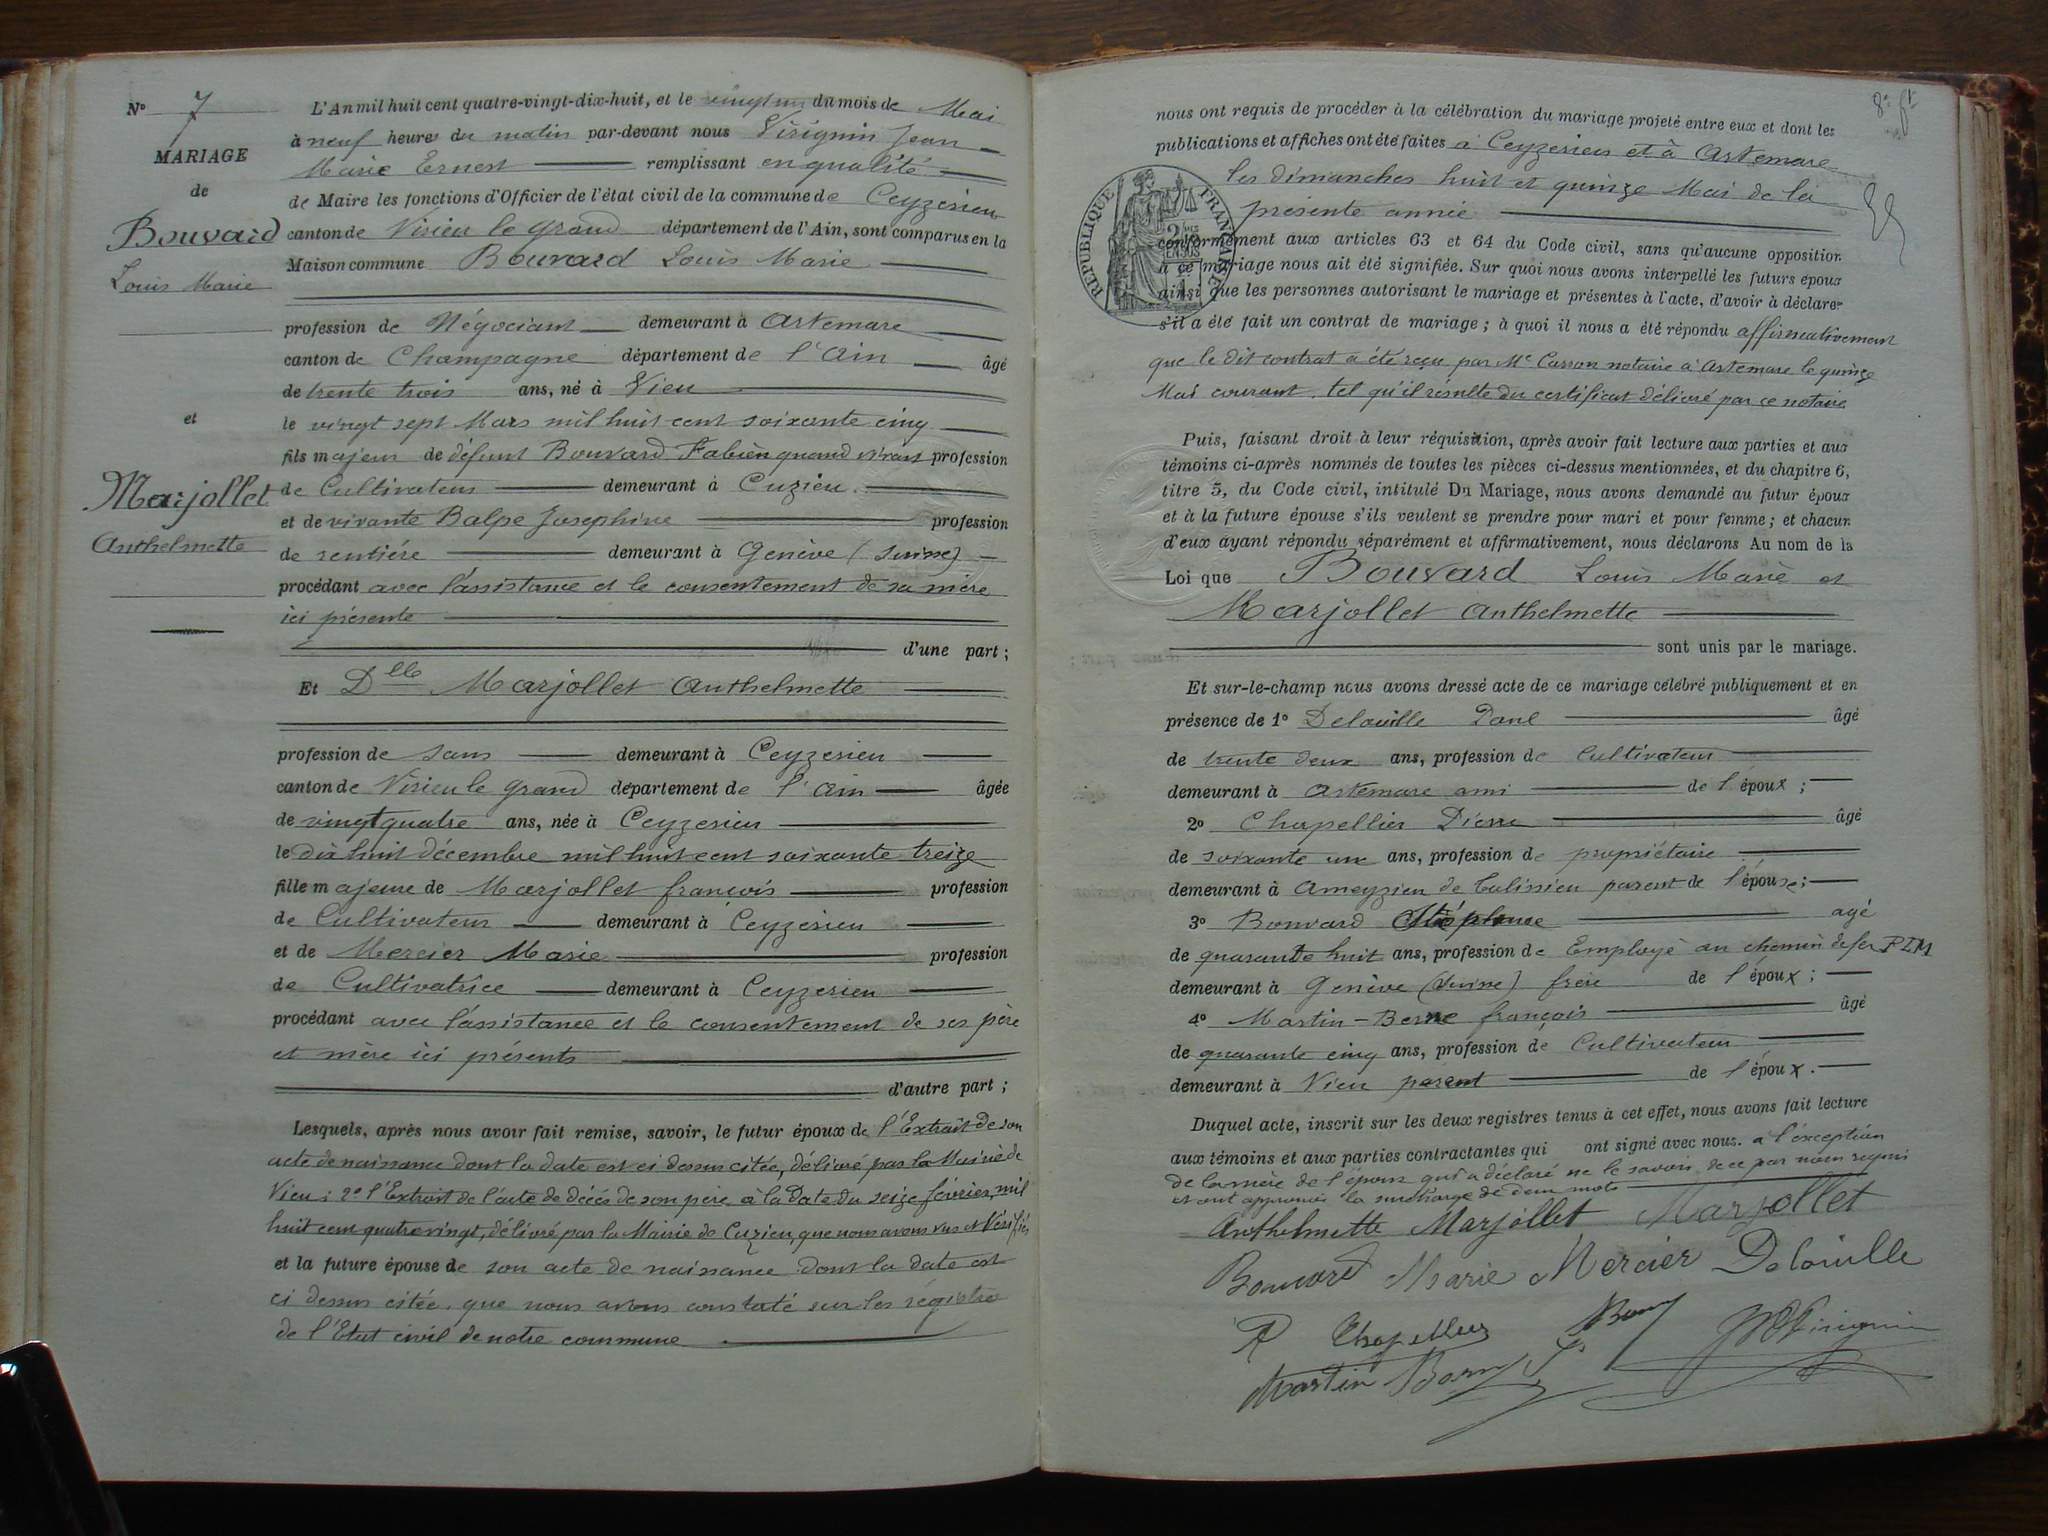 N° 7
MARIAGE
de
Bouvard
Louis Marie
et
Marjollet
Anthelmette
L'An mil huit cent quatre-vingt-dix-huit, et le vingt un du mois de Mai
à neuf heures du matin par-devant nous Virignin Jean
Marie Ernest remplissant en qualité
de Maire les fonctions d'Officier de l'état civil de la commune de Ceyzerieu
canton de Virieu le grand département de l'Ain, sont comparus en la
Maison commune Bouvard Louis Marie
profession de Négociant demeurant à Artemare
canton de Champagne département de l'Ain âgé
de trente trois ans, né à Vieu
le vingt sept Mars mil huit cent soixante cinq
fils majeur de défunt Bouvard Fabien quand vivait profession
de Cultivateur demeurant à Cuzieu.
et de vivante Balpe Josephine profession
de rentière demeurant à Genève (Suisse)
procédant avec l'assistance et le consentement de sa mère
ici présente
d'une part ;
Et Dlle Marjollet Anthelmette
profession de sans demeurant à Ceyzerieu
canton de Virieu le grand département de l'Ain âgée
de vingt quatre ans, née à Ceyzerieu
le dix huit décembre mil huit cent soixante treize
fille majeure de Marjollet françois profession
de Cultivateur demeurant à Ceyzerieu
et de Mercier Marie profession
de Cultivatrice demeurant à Ceyzerieu
procédant avec l'assistance et le consentement de ses père
et mère ici présents
d'autre part ;
Lesquels, après nous avoir fait remise, savoir, le futur époux de l'Extrait de son
acte de naissance dont la date est ci dessus citée, délivré par la Mairie de
Vieu : 2° l'Extrait de l'acte de décés de son père à la date du seize février mil
huit cent quatre vingt, délivré par la Mairie de Cuzieu, que nous avons vus et vérifiés
et la future épouse de son acte de naissance dont la date est
ci dessus citée, que nous avons constaté sur les régistre
de l'Etat civil de notre commune
8e ft
nous ont requis de procéder à la célébration du mariage projeté entre eux et dont les
publications et affiches ont été faites à Ceyzerieu et à Artemare
les dimanches huit et quinze Mai de la
présente année
RÉPUBLIQUE FRANÇAISE
conformément aux articles 63 et 64 du Code civil, sans qu'aucune opposition
à ce mariage nous ait été signifiée. Sur quoi nous avons interpellé les futurs époux
ainsi que les personnes autorisant le mariage et présentes à l'acte, d'avoir à déclarer
s'il a été fait un contrat de mariage ; à quoi il nous a été répondu affirmativement
que le dit contrat a été reçu par Me Carron notaire à Artemare le quinze
Mai courant. tel qu'il résulte du certificat délivré par ce notaire
Puis, faisant droit à leur réquisition, après avoir fait lecture aux parties et aux
témoins ci-après nommés de toutes les pièces ci-dessus mentionnées, et du chapitre 6,
titre 5, du Code civil, intitulé Du Mariage, nous avons demandé au futur époux
et à la future épouse s'ils veulent se prendre pour mari et pour femme ; et chacun
d'eux ayant répondu séparément et affirmativement, nous déclarons Au nom de la
Loi que Bouvard Louis Marie et
Marjollet Anthelmette
sont unis par le mariage.
Et sur-le-champ nous avons dressé acte de ce mariage célébré publiquement et en
présence de 1° Delouille Paul âgé
de trente deux ans, profession de Cultivateur
demeurant à Artemare ami de l'époux ;
2° Chapellier Pierre âgé
de soixante un ans, profession de propriétaire
demeurant à Ameyzieu de Talissieu parent de l'épouse ;
3° Bouvard Stéphane agé
de quarante huit ans, profession de Employé au chemin de fer PLM
demeurant à Genève (Suisse) frère de l'époux ;
4° Martin-Berne françois âgé
de quarante cinq ans, profession de Cultivateur
demeurant à Vieu parent de l'époux.
Duquel acte, inscrit sur les deux registres tenus à cet effet, nous avons fait lecture
aux témoins et aux parties contractantes qui ont signé avec nous. à l'exception
de la mère de l'époux qui a déclaré ne le savoir, de ce par nous requis
et ont approuvé la surcharge de deux mots
Anthelmette Marjollet Marjollet
Bouvard Marie Mercier Delouille
Chapellier
Martin Bern